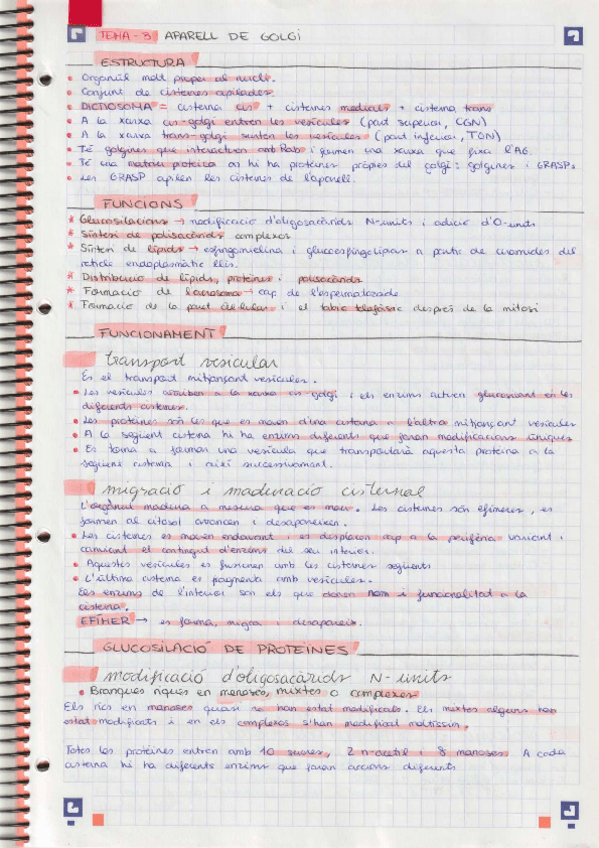 TEMA - 3 APARELL DE GOLGI
ESTRUCTURA
Orgànul molt proper al nucli.
Conjunt de cisternes apilades.
DICTIOSOMA = cisterna cis + cisternes medials + cisterna trans
A la xarxa cis-golgi entren les vesícules (part superior, CGN)
A la xarxa trans-golgi surten les vesícules (part inferior, TGN)
Té golgines que interactuen amb Rab i formen una xarxa que fixa l'AG.
Té una matriu proteica on hi ha proteïnes pròpies del golgi: golgines i GRASPs
Les GRASP apilen les cisternes de l'aparell.
FUNCIONS
* Glucosilacions → modificació d'oligosacàrids N-units i adició d'O-units
* Síntesi de polisacàrids complexos
* Síntesi de lípids → esfingomielina i glucoesfingolípids a partir de ceramides del
reticle endoplasmàtic llis.
* Distribució de lípids, proteïnes i polisacàrids
* Formació de l'acrosoma → cap de l'espermatozoide
* Formació de la paret cel·lular i el tabic telofàsic després de la mitosi
FUNCIONAMENT
transport vesicular
És el transport mitjançant vesícules.
Les vesícules arriben a la xarxa cis golgi i els enzims actuen glucosilant en les
diferents cisternes.
Les proteïnes són les que es mouen d'una cisterna a l'altra mitjançant vesícules
A la següent cisterna hi ha enzims diferents que faran modificacions úniques
Es torna a formar una vesícula que transportarà aquesta proteïna a la
següent cisterna i així successivament.
migració i maduració cisternal
L'orgànul madura a mesura que es mou. Les cisternes són efímeres, es
formen al citosol avancen i desapareixen.
Les cisternes es mouen endavant i es desplacen cap a la perifèria variant i
canviant el contingut d'enzims del seu interior.
Aquestes vesícules es fusionen amb les cisternes següents
L'última cisterna es fragmenta amb vesícules.
Els enzims de l'interior són els que donen nom i funcionalitat a la
cisterna.
EFÍMER → es forma, migra i desapareix.
GLUCOSILACIÓ DE PROTEÏNES
modificació d'oligosacàrids N-units
Branques riques en manoses, mixtes o complexes
Els rics en manoses quasi no han estat modificats. Els mixtes alguns han
estat modificats i en els complexos s'han modificat moltíssim.
Totes les proteïnes entren amb 10 sucres, 2 n-acetil i 8 manoses. A cada
cisterna hi ha diferents enzims que faran accions diferents